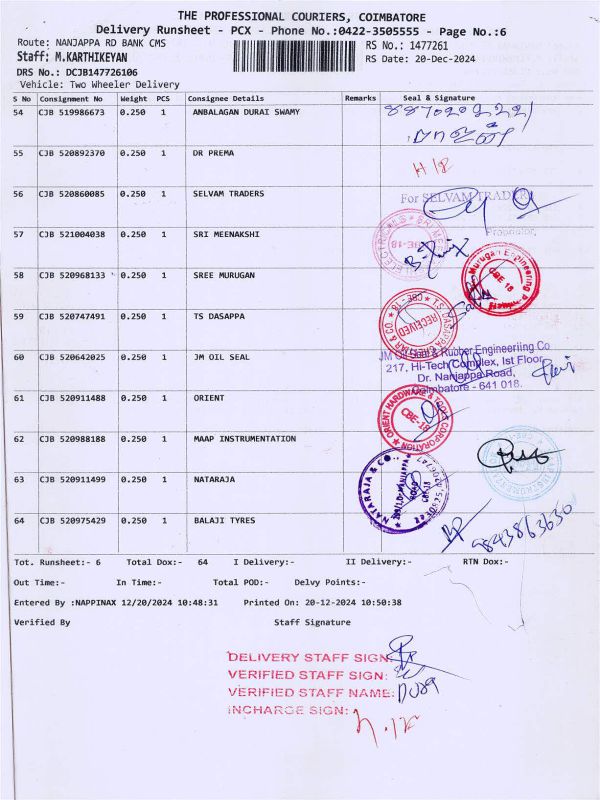 THE PROFESSIONAL COURIERS, COIMBATORE
Delivery Runsheet - PCX - Phone No.:0422-3505555 - Page No.:6
Route: NANJAPPA RD BANK CMS
RS No.: 1477261
Staff: M.KARTHIKEYAN
RS Date: 20-Dec-2024
DRS No.: DCJB147726106
Vehicle: Two Wheeler Delivery
S No Consignment No Weight PCS Consignee Details Remarks Seal & Signature
54 CJB 519986673 0.250 1 ANBALAGAN DURAI SWAMY
55 CJB 520892370 0.250 1 DR PREMA
56 CJB 520860085 0.250 1 SELVAM TRADERS
For SELVAM TRADERS
Proprietor
57 CJB 521004038 0.250 1 SRI MEENAKSHI
58 CJB 520968133 0.250 1 SREE MURUGAN
Murugan Engineering
CBE 18
59 CJB 520747491 0.250 1 TS DASAPPA
TS DASAPPA
RECEIVED
CBE - 18
60 CJB 520642025 0.250 1 JM OIL SEAL
JM Oil Seal & Rubber Engineeriing Co
217, Hi-Tech Complex, Ist Floor,
Dr. Nanjappa Road,
Coimbatore - 641 018.
61 CJB 520911488 0.250 1 ORIENT
ORIENT HARDWARE & TOOL CORPORATION
CBE-18
62 CJB 520988188 0.250 1 MAAP INSTRUMENTATION
63 CJB 520911499 0.250 1 NATARAJA
NATARAJA & CO.
64 CJB 520975429 0.250 1 BALAJI TYRES
9843863630
Tot. Runsheet:- 6 Total Dox:- 64 I Delivery:- II Delivery:- RTN Dox:-
Out Time:- In Time:- Total POD:- Delvy Points:-
Entered By :NAPPINAX 12/20/2024 10:48:31 Printed On: 20-12-2024 10:50:38
Verified By Staff Signature
DELIVERY STAFF SIGN:
VERIFIED STAFF SIGN:
VERIFIED STAFF NAME:
INCHARGE SIGN: